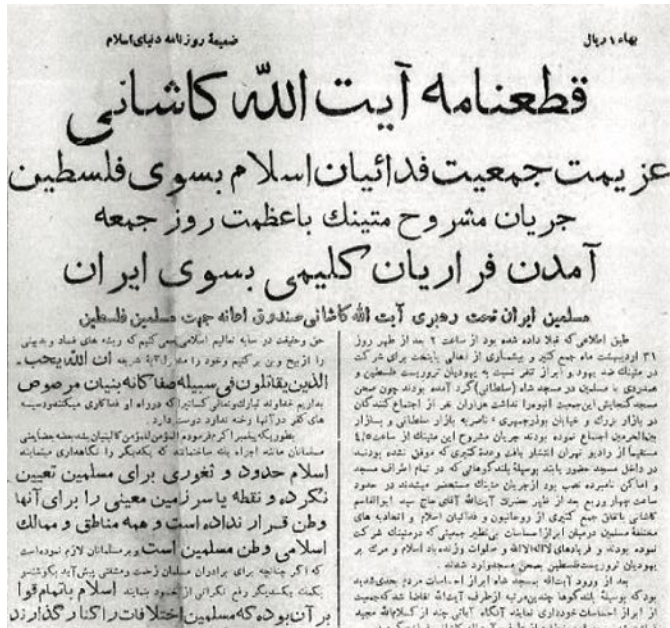 بهاء ۱ ریال
ضمیمهٔ روزنامه دنیای اسلام
قطعنامه آیت الله کاشانی
عزیمت جمعیت فدائیان اسلام بسوی فلسطین
جریان مشروح متینك باعظمت روز جمعه
آمدن فراریان کلیمی بسوی ایران
مسلمین ایران تحت رهبری آیت الله کاشانی صندوق اعانه جهت مسلمین فلسطین
طبق اطلاعی که قبلا داده شده بود از ساعت ۲ بعد از ظهر روز
۳۱ اردیبهشت ماه جمع کثیر و بیشماری از اهالی پایتخت برای شرکت
در متینك ضد یهود و ابراز تنفر نسبت به یهودیان تروریست فلسطین و
همدردی با مسلمین در مسجد شاه (سلطانی) گرد آمده بودند چون صحن
مسجد گنجایش این جمعیت انبوه را نداشت هزاران نفر از اجتماع کنندگان
در بازار بزرك و خیابان بوذرجمهری ، ناصریه بازار سلطانی و بازار
بین‌الحرمین اجتماع نموده بودند جریان مشروح این متینك از ساعت ۴/۵
مستقیماً از رادیو تهران انتشار یافت وعدهٔ کثیری که موفق نشده بودند
در داخل مسجد حضور یابند بوسیلهٔ بلندگوهائی که در تمام اطراف مسجد
و اماکن نامبرده نصب بود از جریان متینك مستحضر میشدند در حدود
ساعت چهار وربع بعد از ظهر حضرت آیت‌الله آقای حاج سید ابوالقاسم
کاشانی باتفاق جمع کثیری از روحانیون و فدائیان اسلام و اتحادیه های
مختلفهٔ مسلمین درمیان ابراز احساسات بی‌نظیر جمعیتی که درمتینك شرکت
نموده بودند و فریادهای لااله‌الاالله و صلوات وزنده‌باد اسلام و مرك بر
یهودیان تروریست فلسطین بصحن مسجد وارد شدند .
بعد از ورود آیت‌الله بمسجد شاه ابراز احساسات مردم بحدی شدید
بود که بوسیلهٔ بلندگوها چندین مرتبه از طرف آیت‌الله تقاضا شد که جمعیت
از ابراز احساسات خودداری نمایند آنگاه آیاتی چند از کلام‌الله مجید
حق وحقیقت در سایه تعالیم اسلامی سعی کنیم که ریشه های فساد و بدبینی
را از بیخ وبن بر کنیم وخود را شریفه ان الله یحب
الذین یقاتلون فی سبیله صفا کانه بنیان مرصوص
بداریم خداوند تبارك وتعالی کسانیرا که در راه او فداکاری میکنند
های کفر در آنها رخنه ندارد دوست دارد .
بطوریکه پیغمبر اکرم فرموده المؤمن للمؤمن کالبنیان یشد بعضه بعضا یعنی
مسلمانان مانند اجزاء بنا ساختمانند که یکدیگر را نگاهداری مینمایند
اسلام حدود و ثغوری برای مسلمین تعیین
نکرده و نقطه یا سرزمین معینی را برای آنها
وطن قرار نداده است و همه مناطق و ممالك
اسلامی وطن مسلمین است و بر مسلمانان لازم نموده است
که اگر چنانچه برای برادران مسلمان زحمت ومشقتی پیش آید بکوشند و
بکمك یکدیگر رفع نگرانی از خود بنمایند اسلام باتمام قوا
بر آن بوده که مسلمین اختلافات را کنار گذارند